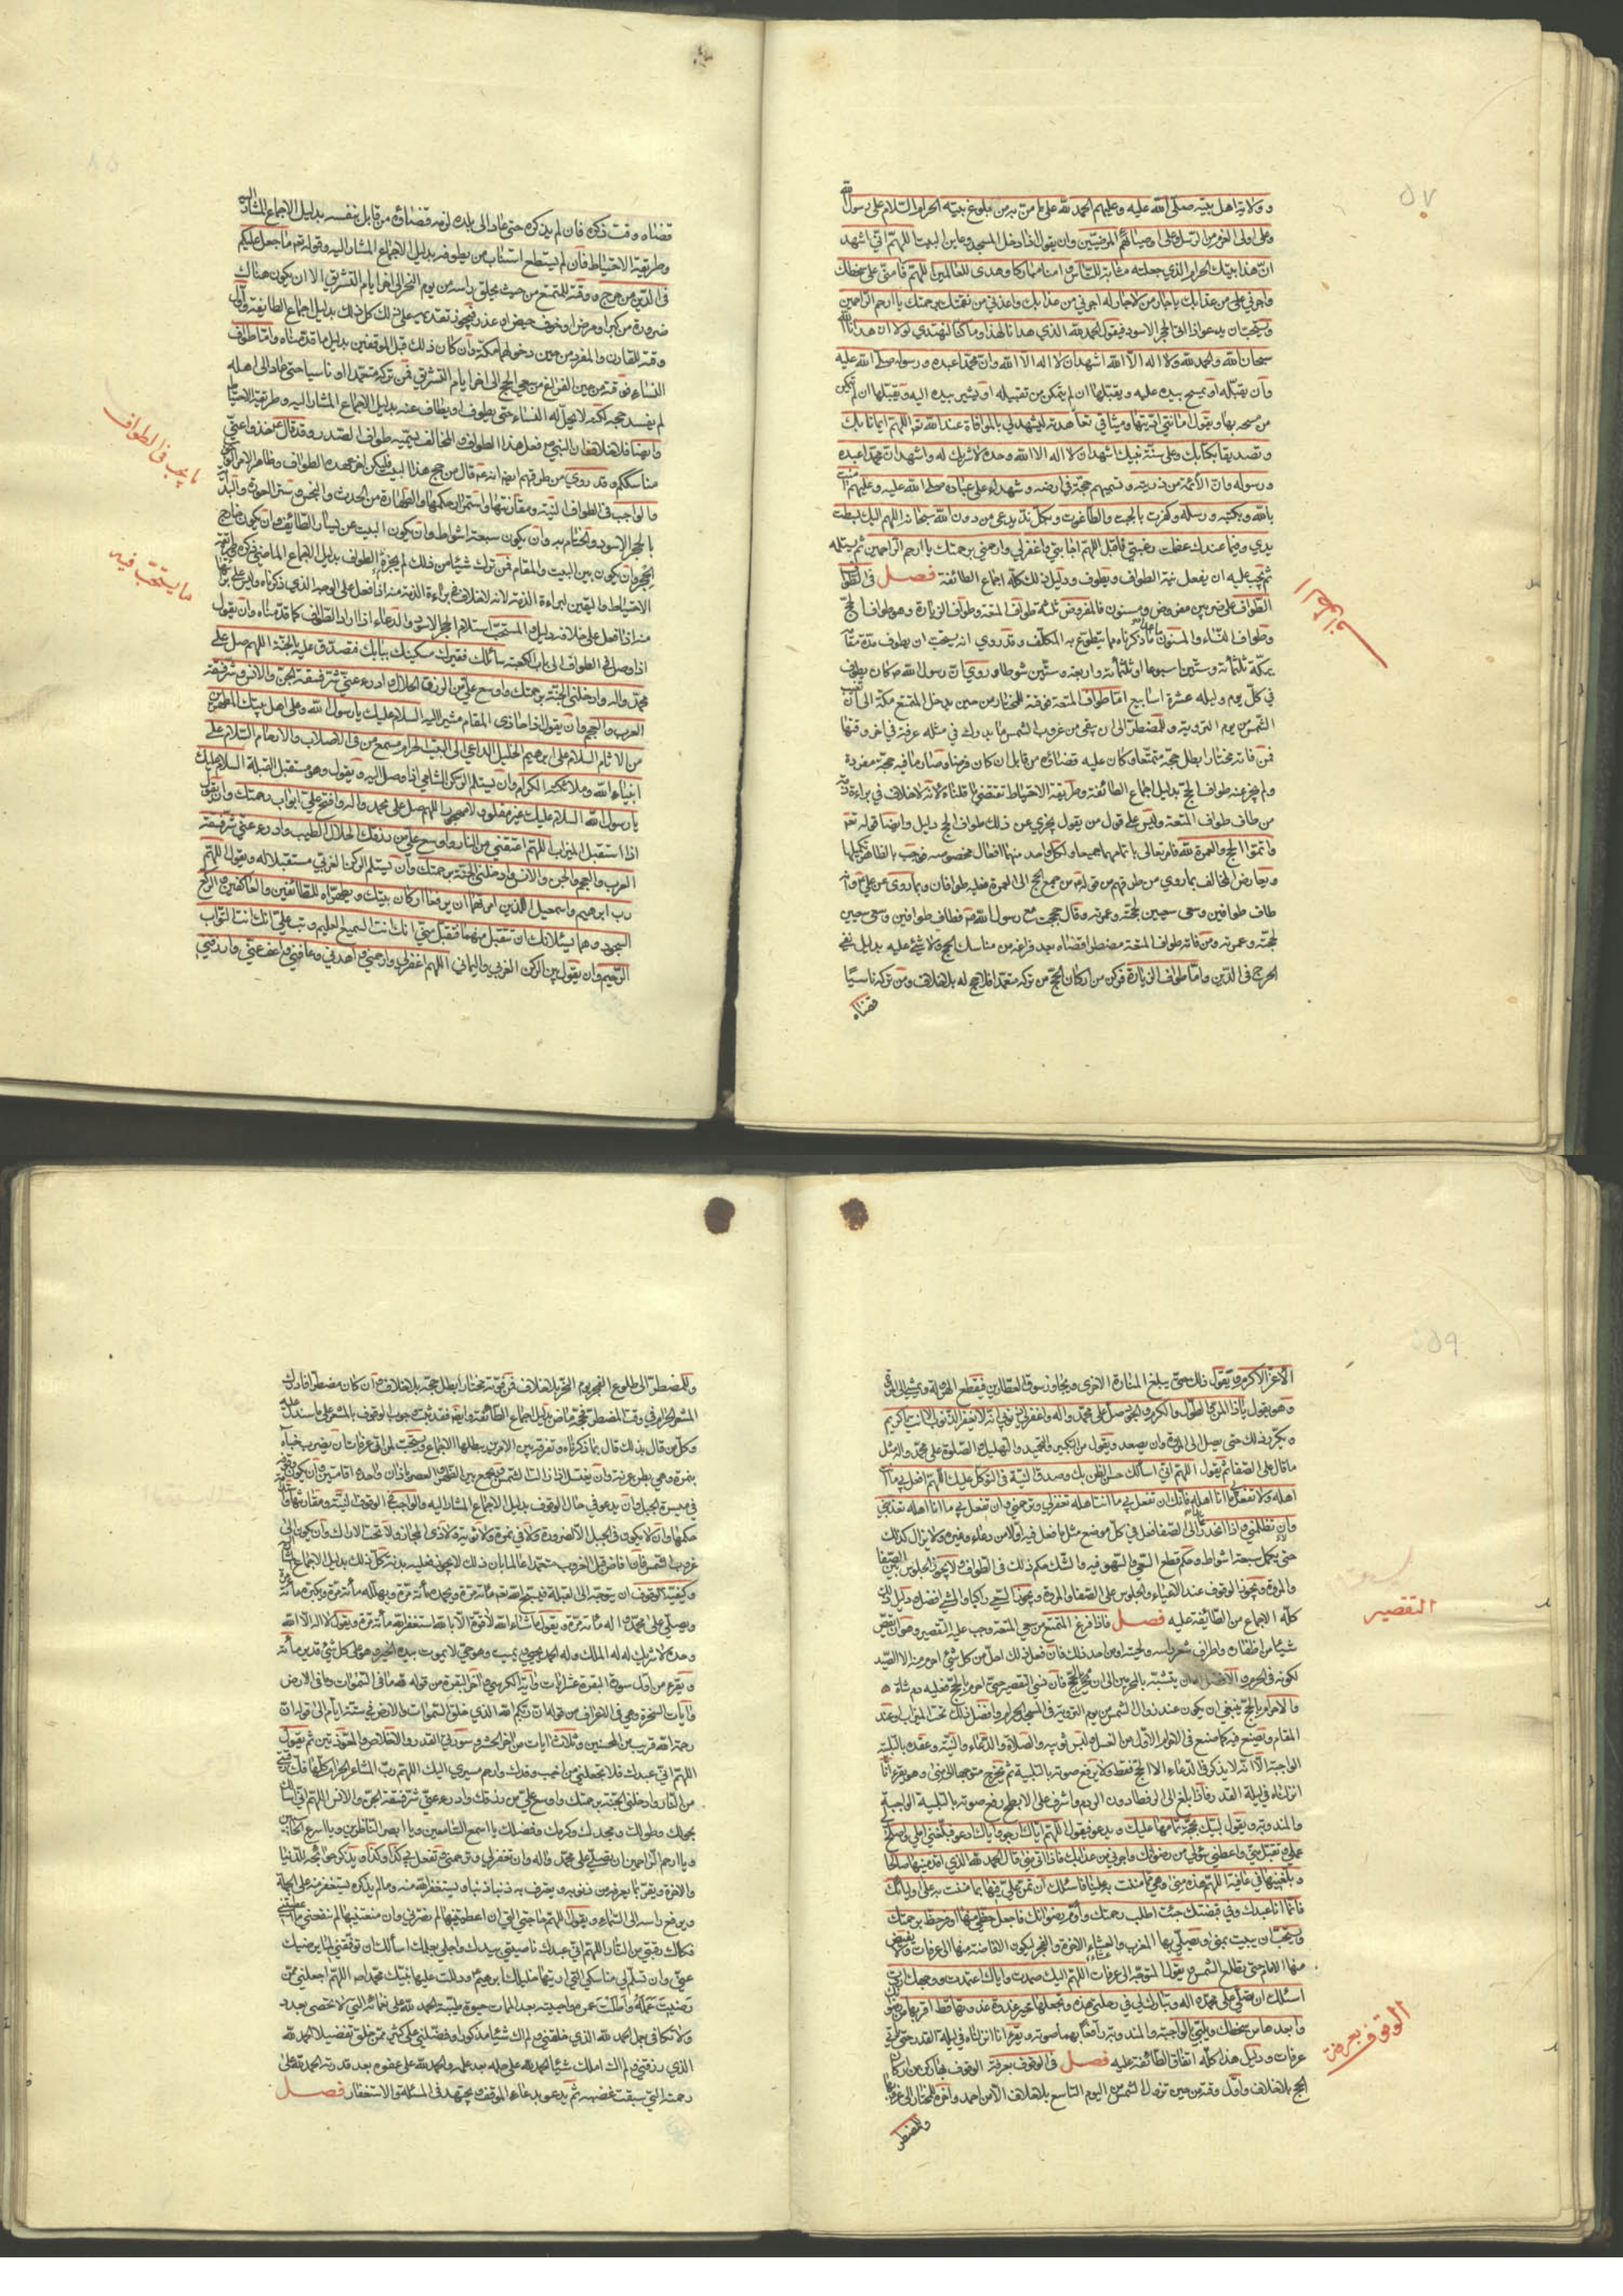 ٥٧
وولاية اهل بيته صلى الله عليه وعليهم الحمد لله على ما من به من بلوغ بيته الحرام السلام على رسول الله
وعلى اولى العزم من الرسل وعلى اوصيائهم المرضيين وان يقول اذا دخل المسجد وعاين البيت اللهم اني اشهد
ان هذا بيتك الحرام الذي جعلته مثابة للناس وامنا مباركا وهدى للعالمين اللهم فامنى على سخطك
واجرني من عذابك يا جار من لا جار له اجرني من عذابك واعذني من نقمتك برحمتك يا ارحم الراحمين
ويستحب ان يدعو اذا اتى الحجر الاسود فيقول الحمد لله الذي هدانا لهذا وما كنا لنهتدي لولا ان هدانا الله
سبحان الله والحمد لله ولا اله الا الله اشهد ان لا اله الا الله وان محمدا عبده ورسوله صلى الله عليه
وان يقبله او يمسح بيده عليه ويقبلها ان لم يتمكن من تقبيله او يشير بيده اليه ويقبلها ان لم يتمكن
من مسحه بها ويقول امانتي اديتها وميثاقي تعاهدته ليشهد لي بالموافاة عند الله تعا اللهم ايمانا بك
وتصديقا بكتابك وعلى سنة نبيك اشهد ان لا اله الا الله وحده لا شريك له واشهد ان محمدا عبده
ورسوله وان الائمة من ذريته ويسميهم حججه في ارضه وشهداءه على عباده صلى الله عليه وعليهم امنت
بالله وبكتبه ورسله وكفرت بالجبت والطاغوت وبكل ند يدعى من دون الله سبحانه اللهم اليك بسطت
يدي وفيما عندك عظمت رغبتي فاقبل اللهم اجابتي واغفر لي وارحمني برحمتك يا ارحم الراحمين ثم يستلمه
ثم يجب عليه ان يفعل نية الطواف ويطوف ودليل ذلك كله اجماع الطائفة فصل في الطواف
الطواف على ضربين مفروض ومسنون فالمفروض ثلثة طواف المتعة وطواف الزيارة وهو طواف الحج
وطواف النساء والمسنون ما عدا ما ذكرناه مما يتطوع به المكلف وقد روي انه يستحب ان يطوف مدة مقامه
بمكة ثلثمائة وستين اسبوعا او ثلثمائة واربعة وستين شوطا وروي ان رسول الله ص كان يطوف
في كل يوم وليلة عشرة اسابيع اما طواف المتعة فوقته للمختار من حين يدخل المتمتع مكة الى ان تغيب
الشمس من يوم التروية وللمضطر الى ان يبقى من غروب الشمس ما يدرك في مثله عرفة في اخر وقتها
فمن فاته مختارا بطل حجه متمتعا وكان عليه قضاؤه من قابل ان كان فرضا وصار ما فيه حجة مفردة
ولم يجز عنه طواف الحج بدليل اجماع الطائفة وطريقة الاحتياط تقتضي ما قلناه لانه لا خلاف في براءة ذمة
من طاف طواف المتعة وليس على قول من يقول يجزي عن ذلك طواف الحج دليل وايضا قوله تعم
واتموا الحج والعمرة لله فامر تعالى باتمامهما جميعا ولكل واحد منهما افعال مخصوصه فوجب بالظاهر تكميلها
ويعارض المخالف بما روي من طرقهم من قوله ع من جمع الحج الى العمرة فعليه طوافان وبما روى عن علي ع انه
طاف طوافين وسعى سعيين لحجته وعمرته وقال حججت مع رسول الله ص فطاف طوافين وسعى سعيين
لحجته وعمرته ومن فاته طواف المتعة مضطرا قضاه بعد فراغه من مناسك الحج ولا شئ عليه بدليل نفي
الحرج في الدين واما طواف الزيارة فركن من اركان الحج من تركه متعمدا فلا حج له بلا خلاف ومن تركه ناسيا
قضاه
قضاه وقت ذكره فان لم يذكره حتى عاد الى بلده لزمه قضاؤه من قابل بنفسه بدليل الاجماع المشار اليه
وطريقة الاحتياط فان لم يستطع استناب من يطوفه بدليل الاجماع المشار اليه وقوله تعم ما جعل عليكم
في الدين من حرج ووقته للمتمتع من حيث يحلق راسه من يوم النحر الى اخر ايام التشريق الا ان يكون هناك
ضرورة من كبر او مرض او خوف حيض او عذر فيجوز تقديمه على ذلك كل ذلك بدليل اجماع الطايفة واول
وقته للقارن والمفرد من حين دخولهما مكة وان كان ذلك قبل الموقفين بدليل ما قدمناه واما طواف
النساء فوقته من حين الفراغ من سعي الحج الى اخر ايام التشريق فمن تركه متعمدا او ناسيا حتى عاد الى اهله
لم يفسد حجه لكنه لا يحل له النساء حتى يطوف او يطاف عنه بدليل الاجماع المشار اليه وطريقة الاحتياط
وايضا فلا خلاف ان النبي ص فعل هذا الطواف والمخالف يسميه طواف الصدر وقد قال ع خذوا عني
مناسككم وقد روي من طرقهم ايضا انه ع قال من حج هذا البيت فليكن اخر عهده الطواف وظاهر الامر الوجوب
والواجب في الطواف النية ومقارنتها واستمرار حكمها والطهارة من الحدث والنجس وستر العورة والبداءة
بالحجر الاسود والختام به وان يكون سبعة اشواط وان يكون البيت عن يسار الطائف وان يكون خارج
الحجر وان يكون بين البيت والمقام فمن ترك شيئا من ذلك لم يجزه الطواف بدليل الاجماع الماضي ذكره وطريقة
الاحتياط واليقين لبراءة الذمة لانه لا خلاف في براءة الذمة منه اذا فعل على الوجه الذي ذكرناه وليس على برائتها
منه اذا فعل على خلافه دليل والمستحب استلام الحجر الاسود والدعاء اذا اراد الطواف كما قدمناه وان يقول
اذا وصل في الطواف الى باب الكعبة سائلك فقيرك مسكينك ببابك فتصدق عليه بالجنة اللهم صل على
محمد واله وادخلني الجنة برحمتك واوسع علي من الرزق الحلال وادرء عني شر فسقة الجن والانس وشر فسقة
العرب والعجم وان يقول اذا حاذى المقام مشيرا اليه السلام عليك يا رسول الله وعلى اهل بيتك المطهرين
من الاثام السلام على ابرهيم الخليل الداعي الى البيت الحرام مسمع من في الاصلاب والارحام السلام على
انبياء الله وملائكته الكرام وان يستلم الركن الشامي اذا وصل اليه ويقول وهو مستقبل القبلة السلام عليك
يا رسول الله السلام عليك غير مقلو ولا مهجور اللهم صل على محمد واله وافتح علي ابواب رحمتك وان يقول
اذا استقبل الميزاب اللهم اعتقني من النار واوسع علي من رزقك الحلال الطيب وادرء عني شر فسقة
العرب والعجم والجن والانس وادخلني الجنة برحمتك وان يستلم الركن الغربي مستقبلا له ويقول اللهم
رب ابرهيم واسمعيل الذين امرتهما ان يرفعا اركان بيتك ويطهراه للطائفين والعاكفين والركع
السجود وهما يسئلانك ان تتقبل منهما فتقبل مني انك انت السميع العليم وتب علي انك انت التواب
الرحيم وان يقول بين الركن الغربي واليماني اللهم اغفر لي وارحمني واهدني وعافني واعف عني وارزقني
ما يجب في الطواف
ما يستحب فيه
٥٩
الاعز الاكرم ويقول ذلك حتى يبلغ المنارة الاخرى ويجاوز سوق العطارين فيقطع الهرولة ويمشي الى المروة
وهو يقول يا ذا المن والطول والكرم والجود صل على محمد واله واغفر لي ذنوبي انه لا يغفر الذنوب الا انت يا كريم
ويكرر ذلك حتى يصل الى المروة وان يصعد ويقول من التكبير والتحميد والتهليل والصلوة على محمد واله مثل
ما قال على الصفا ثم يقول اللهم اني اسألك حسن الظن بك وصدق النية في التوكل عليك اللهم افعل بي ما انت
اهله ولا تفعل بي ما انا اهله فانك ان تفعل بي ما انت اهله تغفر لي وترحمني وان تفعل بي ما انا اهله تعذبني
ولن تظلمني واذا انحدر الى الصفا فعل في كل موضع مثل ما فعل فيه اولا من دعاء وغيره ولا يزال كذلك
حتى يكمل سبعة اشواط وحكم قطع السعي والسهو فيه والشك حكم ذلك في الطواف ولا يجوز الجلوس بين الصفا
والمروة ويجوز الوقوف عند الاعياء والجلوس على الصفا والمروة ويجوز السعي راكبا والمشي افضل ودليل ذلك
كله الاجماع من الطائفة عليه فصل فاذا فرغ المتمتع من سعي المتعة وجب عليه التقصير وهو ان يقص
شيئا من اظفاره واطراف شعر راسه ولحيته او من احد ذلك فان فعل ذلك احل من كل شئ احرم منه الا الصيد
لكونه في الحرم والافضل له ان يتشبه بالمحرمين الى ان يحرم بالحج فان نسي التقصير حتى احرم بالحج فعليه دم شاة
والاحرام بالحج ينبغي ان يكون عند زوال الشمس من يوم التروية في المسجد الحرام وافضل ذلك تحت الميزاب او عند
المقام ويصنع فيه كما صنع في الاحرام الاول من الغسل ولبس ثوبيه والصلاة والدعاء والنية وعقده بالتلبية
الواجبة الا انه لا يذكر في الدعاء الا الحج فقط ولا يرفع صوته بالتلبية ثم يخرج متوجها الى منى وهو يقرء انا
انزلناه في ليلة القدر فاذا بلغ الى الرقطاء دون الردم واشرف على الابطح رفع صوته بالتلبية الواجبة
والمندوبة ويقول لبيك بحجة تمامها عليك ويدعو فيقول اللهم اياك ارجو واياك ادعو فبلغني املي واصلح
عملي وتقبل مني واعطني سؤلي من رضوانك واجرني من عذابك فاذا اتى منى قال الحمد لله الذي اقدمنيها صالحا
وبلغنيها في عافية اللهم هذه منى وهي مما مننت به علينا فاسئلك ان تمن علي فيها بما مننت به على اوليائك
فانما انا عبدك وفي قبضتك جئت اطلب رحمتك واؤم رضوانك فاجعل حظي منها اوفر حظ برحمتك
ويستحب ان يبيت بمنى ويصلي بها المغرب والعشاء الاخرة والفجر ليكون الافاضة منها الى عرفات ولا يفيض
منها الامام حتى يطلع الشمس ويقول المتوجه الى عرفات اللهم اليك صمدت واياك اعتمدت ووجهك اردت
اسئلك ان تصلي على محمد واله وتبارك لي في رحلتي هذه وتجعلها خير غدوة غدوتها قط اقربها من رضوانك
وابعدها من سخطك ويلبي بالواجبة والمندوبة رافعا بهما صوته ويقرء انا انزلناه في ليلة القدر حتى ياتي
عرفات ودليل هذا كله اتفاق الطائفة عليه فصل في الوقوف بعرفة الوقوف بها ركن من اركان
الحج بلا خلاف واول وقته من حين تزول الشمس من اليوم التاسع بلا خلاف الا من احمد واخره للمختار الى غروبها
وللمضطر
التقصير
الوقوف بعرفة
وللمضطر الى طلوع الفجر يوم النحر بلا خلاف فمن فوته مختارا بطل حجه بلا خلاف وان كان مضطرا فادرك
المشعر الحرام في وقت المضطر فحجه ماض بدليل اجماع الطائفة وايضا فقد ثبت وجوب الوقوف بالمشعر على ما سندل عليه
وكل من قال بذلك قال بما ذكرناه وتفرقة بين الامرين يبطلها الاجماع ويستحب لمن اتى عرفات ان يضرب خباه
بنمرة وهي بطن عرنة وان يغتسل اذا زالت الشمس ويجمع بين الظهر والعصر باذان واحد واقامتين وان يكون وقوفه
في ميسرة الجبل وان يدعو في حال الوقوف بدليل الاجماع المشار اليه والواجب في الوقوف النية ومقارنتها واستدامة
حكمها وان لا يكون في الجبل الا لضرورة ولا في نمرة ولا ثوية ولا ذي المجاز ولا تحت الاراك وان يكون الى
غروب الشمس فان افاض قبل الغروب متعمدا عالما بان ذلك لا يجوز فعليه بدنة كل ذلك بدليل الاجماع المشار
وكيفية الوقوف ان يتوجه الى القبلة فيسبح الله تعم مائة مرة ويحمده مائة مرة ويهلله مائة مرة ويكبره مائة
ويصلي على محمد واله مائة مرة ويقول ما شاء الله لا قوة الا بالله استغفر الله مائة مرة ويقول لا اله الا الله
وحده لا شريك له له الملك وله الحمد يحيي ويميت وهو حي لا يموت بيده الخير وهو على كل شئ قدير مائة
ويقرء من اول سورة البقرة عشر ايات واية الكرسي واخر البقرة من قوله لله ما في السموات وما في الارض
وايات السخرة وهي في الاعراف من قوله ان ربكم الله الذي خلق السموات والارض في ستة ايام الى قوله ان
رحمة الله قريب من المحسنين وثلاث ايات من اخر الحشر وسورتي القدر والاخلاص والمعوذتين ثم يقول
اللهم اني عبدك فلا تجعلني من اخيب وفدك وارحم مسيري اليك اللهم رب المشاعر الحرام كلها فك رقبتي
من النار وادخلني الجنة برحمتك واوسع علي من رزقك وادرء عني شر فسقة الجن والانس اللهم اني اسألك
بحولك وطولك ومجدك وكرمك وفضلك يا اسمع السامعين ويا ابصر الناظرين ويا اسرع الحاسبين
ويا ارحم الراحمين ان تصلي على محمد واله وان تغفر لي وترحمني وتفعل بي كذا وكذا ويذكر حوائجه للدنيا
والاخرة ويقر بما يعرفه من ذنوبه ويعترف به ذنبا ذنبا ويستغفر الله منه وما لم يذكره يستغفر منه على الجملة
ويرفع راسه الى السماء ويقول اللهم حاجتي التي ان اعطيتنيها لم يضرني وان منعتنيها لم ينفعني ما اعطيتني
فكاك رقبتي من النار اللهم اني عبدك ناصيتي بيدك واجلي بعلمك اسألك ان توفقني لما يرضيك
عني وان تسلم لي مناسكي التي اريتها خليلك ابرهيم ع ودللت عليها نبيك محمدا ص اللهم اجعلني ممن
رضيت عمله واطلت عمره واحييته بعد الممات حيوة طيبة الحمد لله على نعمائه التي لا تحصى بعدد
ولا تكافى بعمل الحمد لله الذي خلقني ولم اك شيئا مذكورا وفضلني على كثير ممن خلق تفضيلا الحمد لله
الذي رزقني ولم اك املك شيئا الحمد لله على حلمه بعد علمه والحمد لله على عفوه بعد قدرته الحمد لله على
رحمته التي سبقت غضبه ثم يدعو بدعاء الموقف ويجتهد في المسئلة والاستغفار فصل